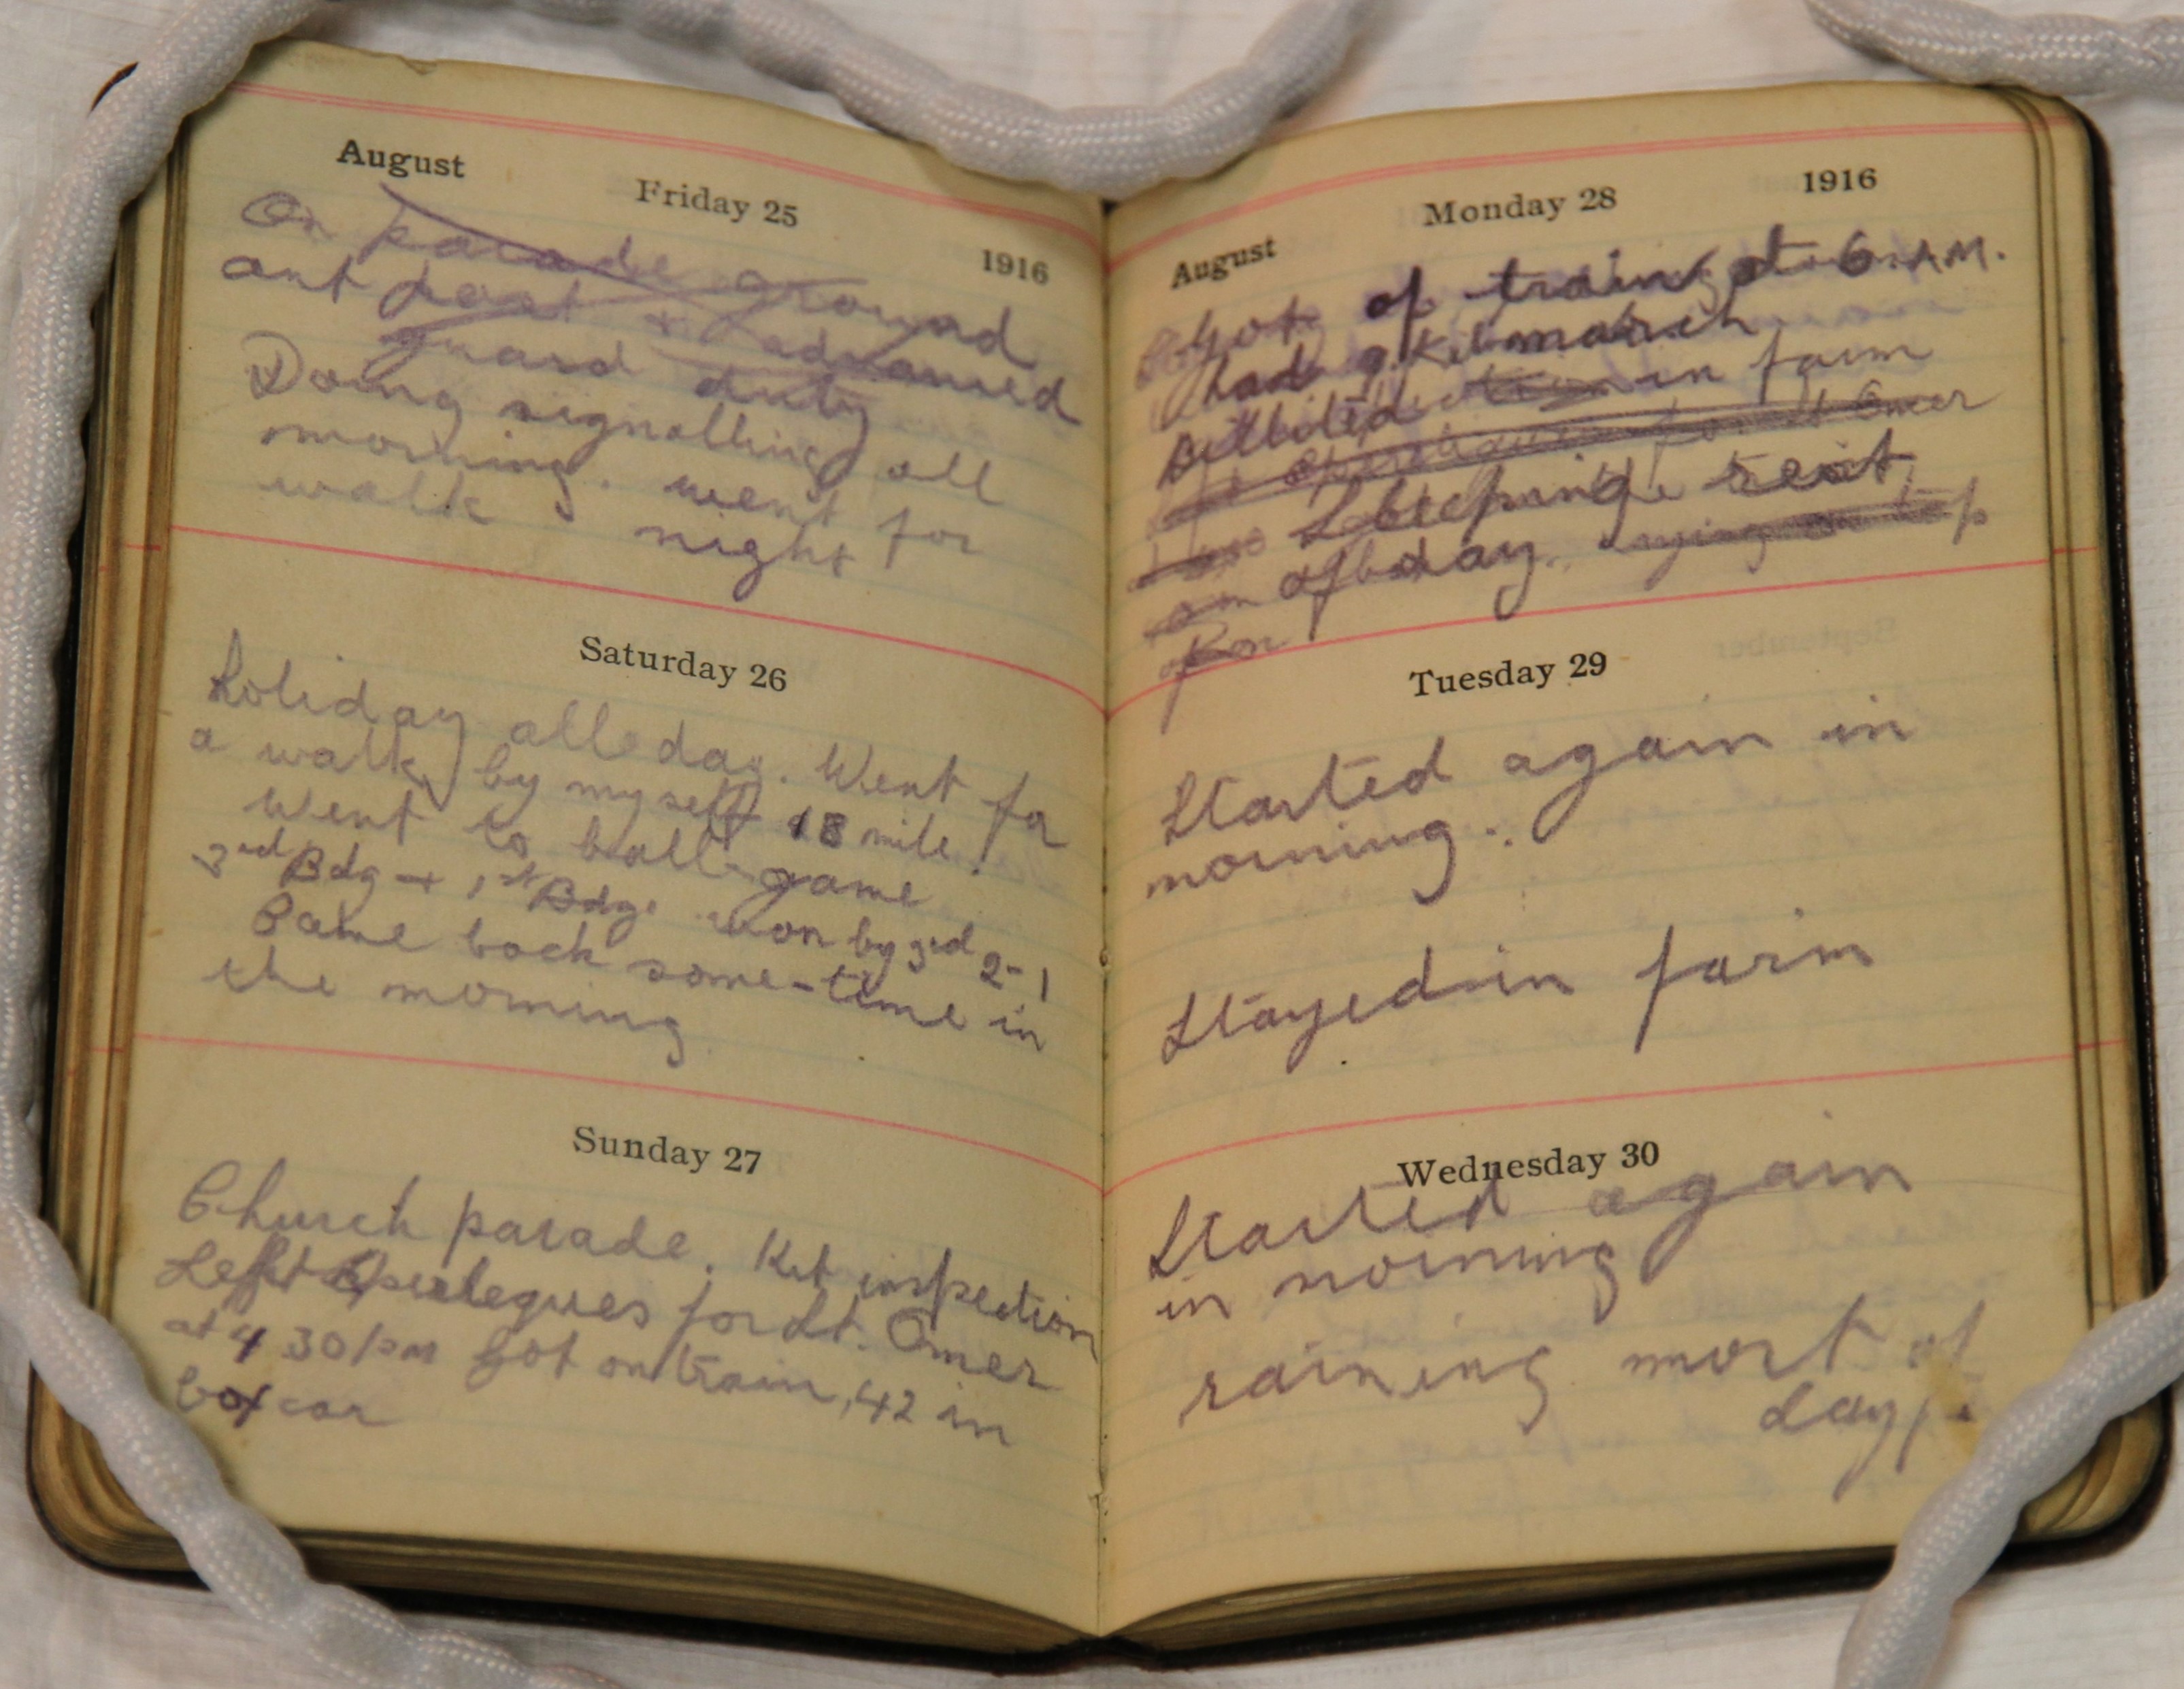 August
Friday 25
1916
On parade ground
out post + advanced
guard duty
Doing signalling all
morning. went for
walk night
Saturday 26
Holiday all day. Went for
a walk by myself 18 mile.
Went to ball game
3rd Bdg + 1st Bdg. won by 3rd 2-1
Came back some-time in
the morning
Sunday 27
Church parade. Kit inspection
Left for St. Omer
at 4 30 pm Got on train, 42 in
box car
August
Monday 28
1916
Got of train at 6 A.M.
had march
Billited in farm
Omer
Sleeping rest
of day. lying on top
Tuesday 29
Started again in
morning.
Stayed in farm
Wednesday 30
Started again
in morning
raining most of
day